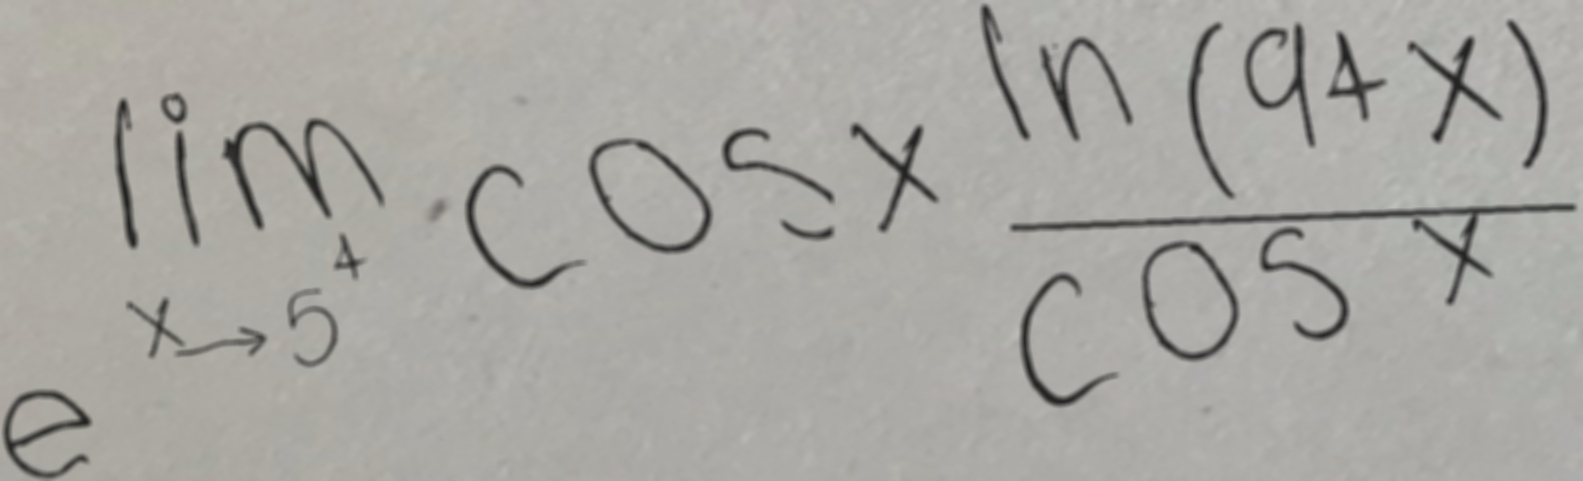 e^{\lim_{x \to 5^+} \cos x \frac{\ln(9+x)}{\cos x}}